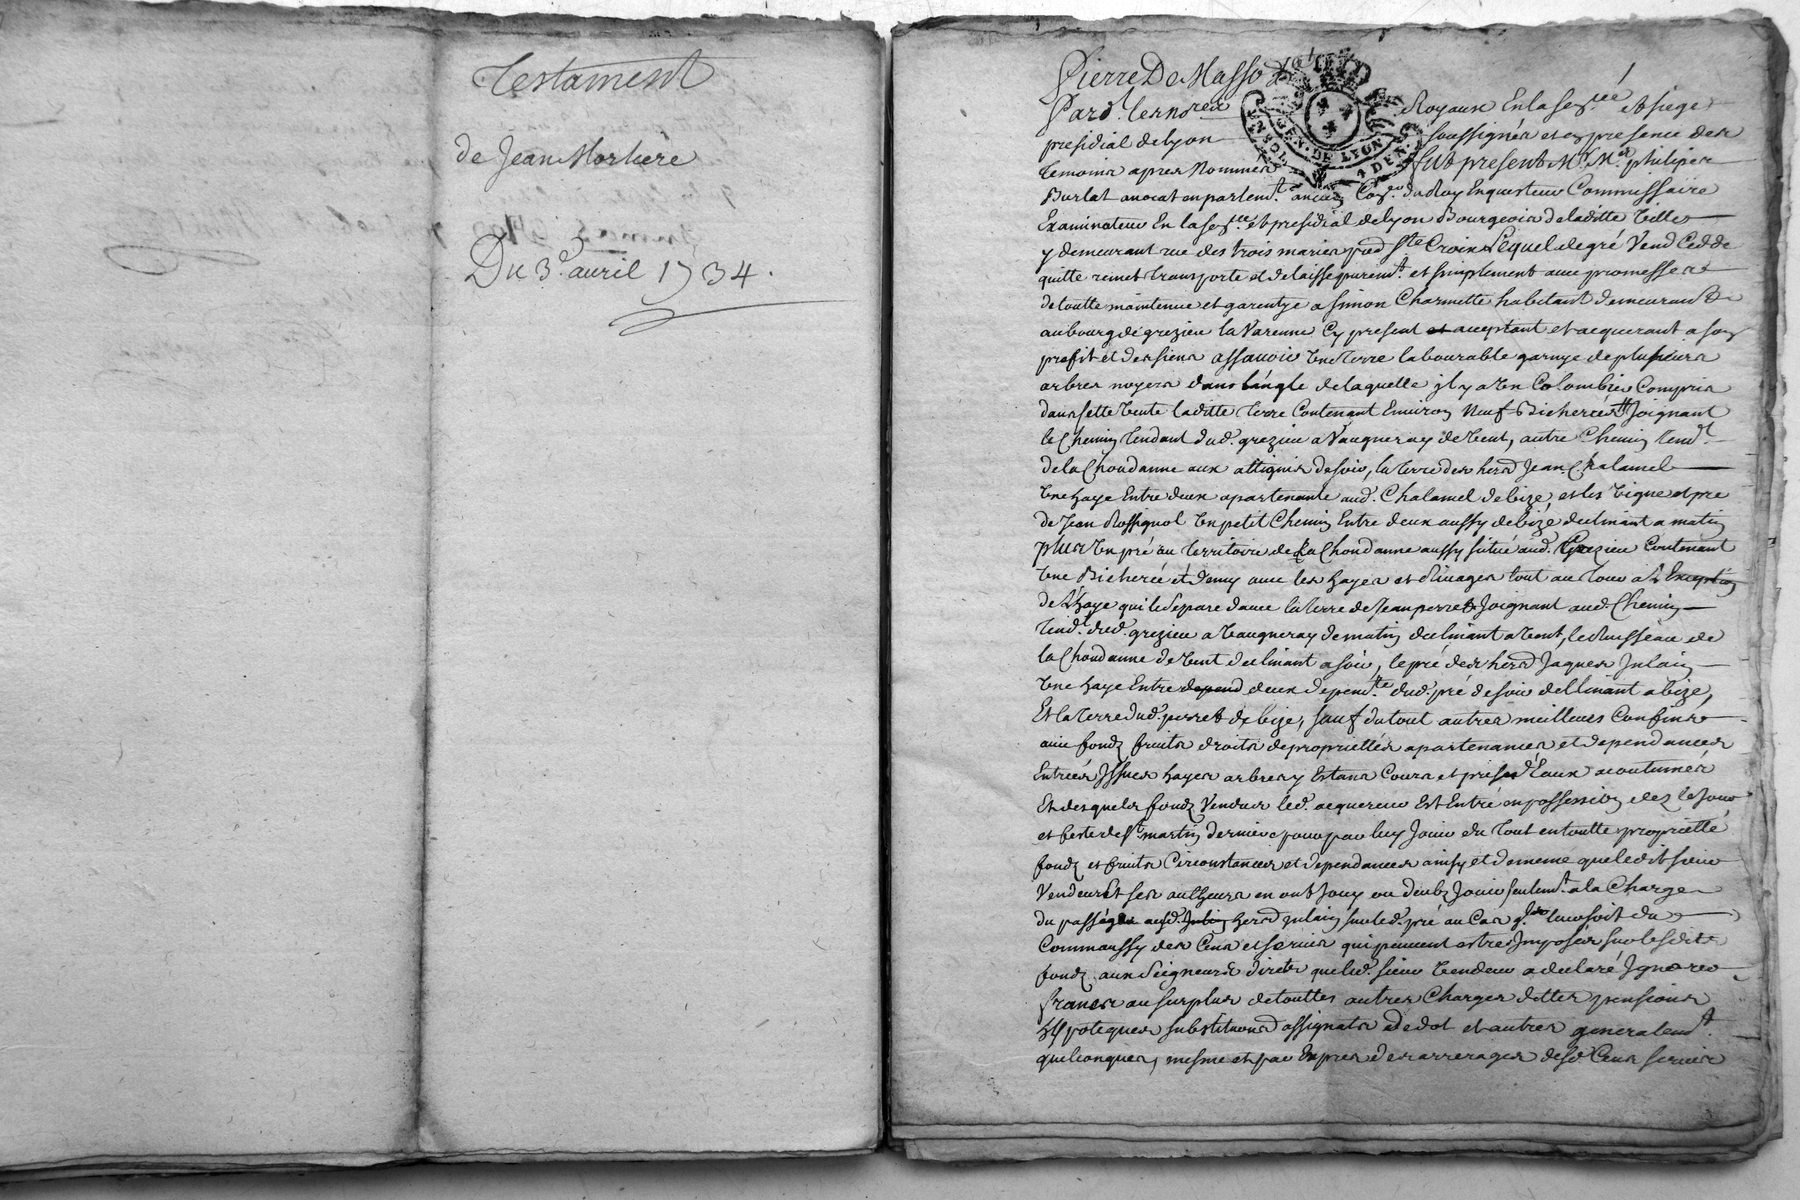 Testament
de Jean Morliere
Du 3e. auril 1734.
Pierre De Masso
GEN. DE LYON
4 DEN.
Pard.t les no.res Royaux En la sen.cée et siege
presidial de Lyon soussignés et en presence des
temoins apres Nommés fut present M.r M.e philipes
Burlat auocat en parlem.t ancien Con.er du Roy Enquesteur Commissaire
Examinateur En la sen.cée et presidial de Lyon Bourgeois de laditte Ville
y demeurant rue des trois maries p.sse S.te Croix Lequel de gré Vend Cedde
quitte remet transporte et delaisse purem.t et simplement auec promesse
de toutte maintenue et garentye a simon Charmette habitant demeurant
au bourg de grezieu la Varenne Cy present et aceptant et acquerant a son
profit et des siens assauoir Une Terre labourable garnye de plusieurs
arbres noyers dans l'angle de laquelle jl y a Un Colombier Compris
dans sette Vente laditte terre Contenant Enuiron Neuf Bicherées Joignant
le Chemin tendant dud. grezieu a Vaugneray de Vent, autre Chemin tend.t
de la Choudanne aux attignies de soir, la terre des hers Jean Chalamel
Une haye Entre deux apartenante aud. Chalamel de bize et les Vigne et pre
de Jean Rossignol Un petit Chemin Entre deux aussy de bize declinant a matin
plus Un pré au territoire de la Choudanne aussy situé aud. Grezieu Contenant
Une Bicherée et demy auec les hayes et Riuages tout au tour a l'Exception
de l'haye qui le separe d'auec la terre de Jean perret Joignant aud. Chemin
tend.t dud. grezieu a Vaugneray de matin declinant a Vent, le Ruisseau de
la Choudanne de Vent declinant a soir, le pré des hers Jaques Julain
Une haye Entre depend deux depend.te dud. pré de soir dellinant a bize,
Et la terre dud. perret de bize, sauf du tout autres meilleurs Confins
auec fonds fruits droits de propriettés apartenances et dependances
Entrées Issues hayes arbres y Estans Cours et prises d'Eaux acoutumés
Et desquels fonds Vendus led. acquereur Est Entré en possession dez le Jour
et feste de S.t martin dernier pour par luy Jouir du tout en toutte proprietté
fonds et fruits Circonstances et dependances ainsy et de meme que ledit sieur
Vendeur Et ses autheurs en ont Jouy ou deub Jouir seulem.t a la Charge
du passage aud. Julin hers Julain sur led. pré au Cas q. Jceluy soit du
Comme aussy des Cens et seruis qui peuuent estres Imposés sur lesdits
fonds aux Seigneurs directs que led. sieur Vendeur a declaré Ignorer
francs au surplus de touttes autres Charges dettes pensions
hypoteques substituons assignats de dot et autres generalem.t
quelconques, mesme et par Expres des arrerages desd. Cens seruis